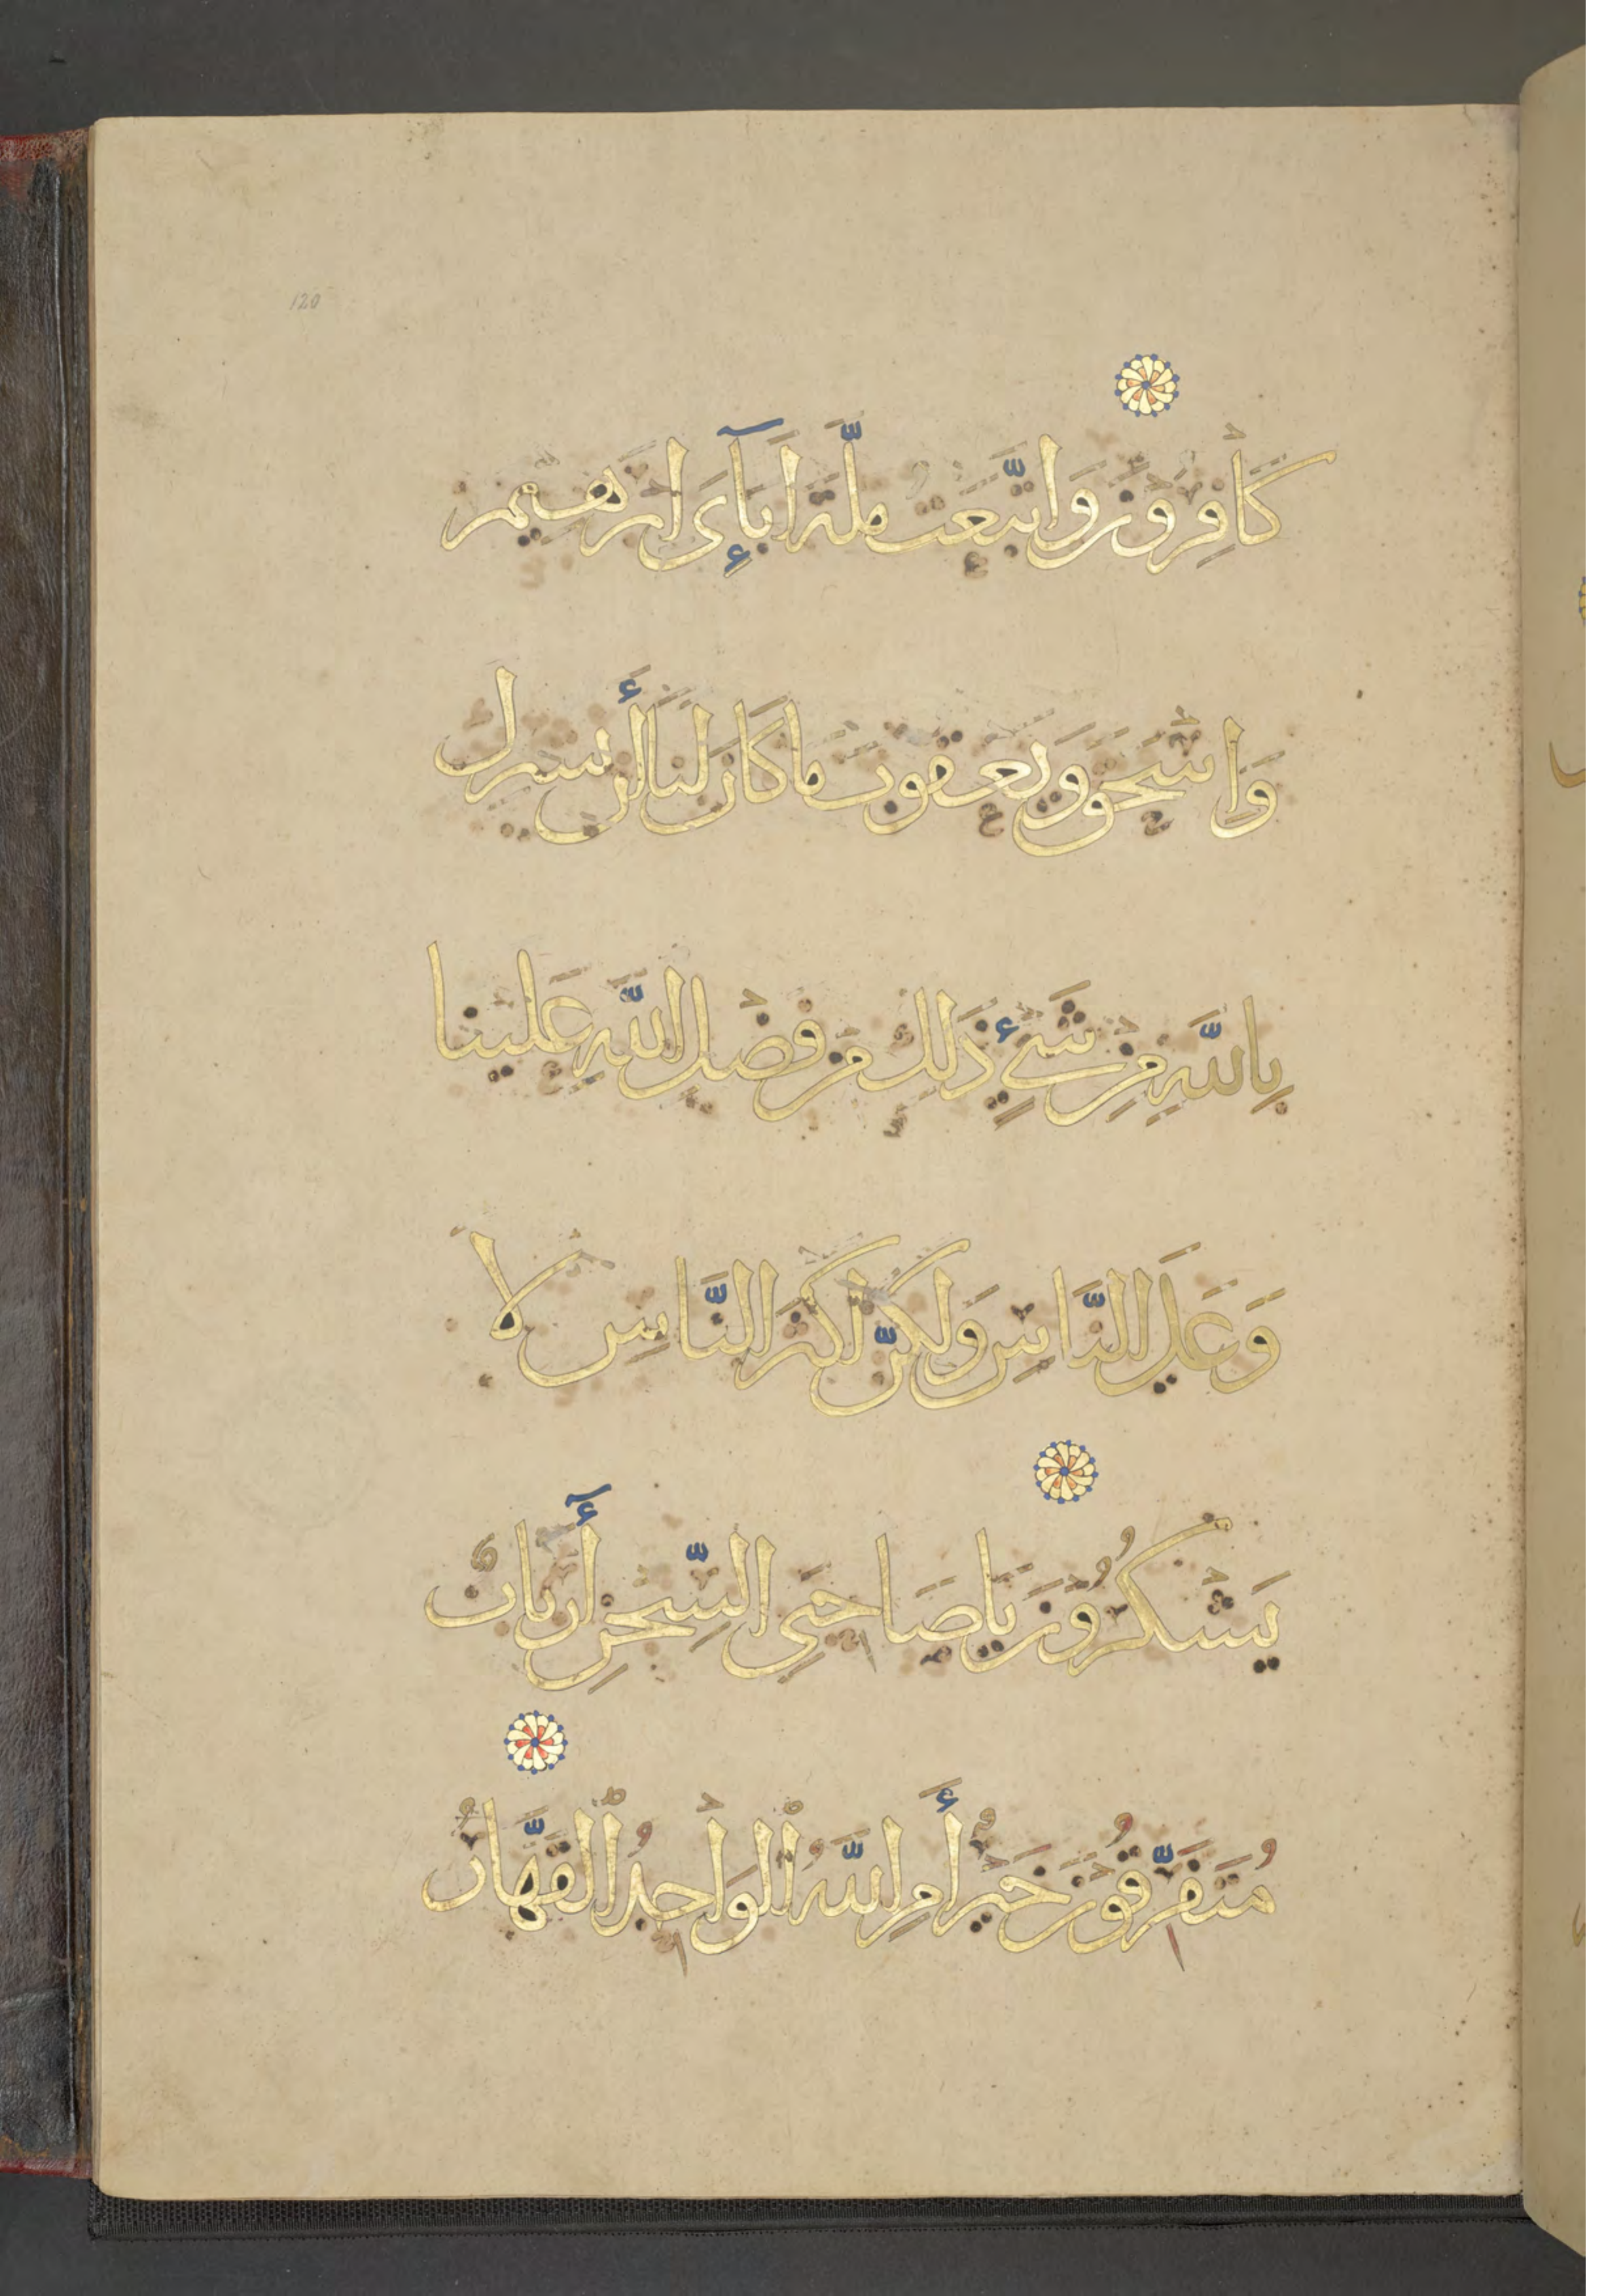 120
كَافِرُونَ وَاتَّبَعْتُ مِلَّةَ اَبَآءِىَ اِبْرَهِيمَ
وَاِسْحَقَ وَيَعْقُوبَ مَا كَانَ لَنَا أَن نُشْرِكَ
بِاللَّهِ مِن شَىْءٍ ذَلِكَ مِن فَضْلِ اللَّهِ عَلَيْنَا
وَعَلَى النَّاسِ وَلَكِنَّ اَكْثَرَ النَّاسِ لَا
يَشْكُرُونَ يَا صَاحِبَىِ السِّجْنِ أَٓرْبَابٌ
مُتَفَرِّقُونَ خَيْرٌ أَمِ اللَّهُ الْوَاحِدُ الْقَهَّارُ